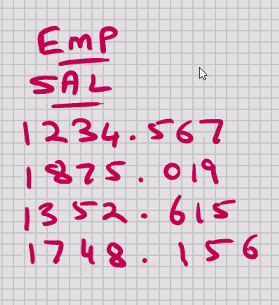 EmP
SAL
1234.567
1875.019
1352.615
1748.156